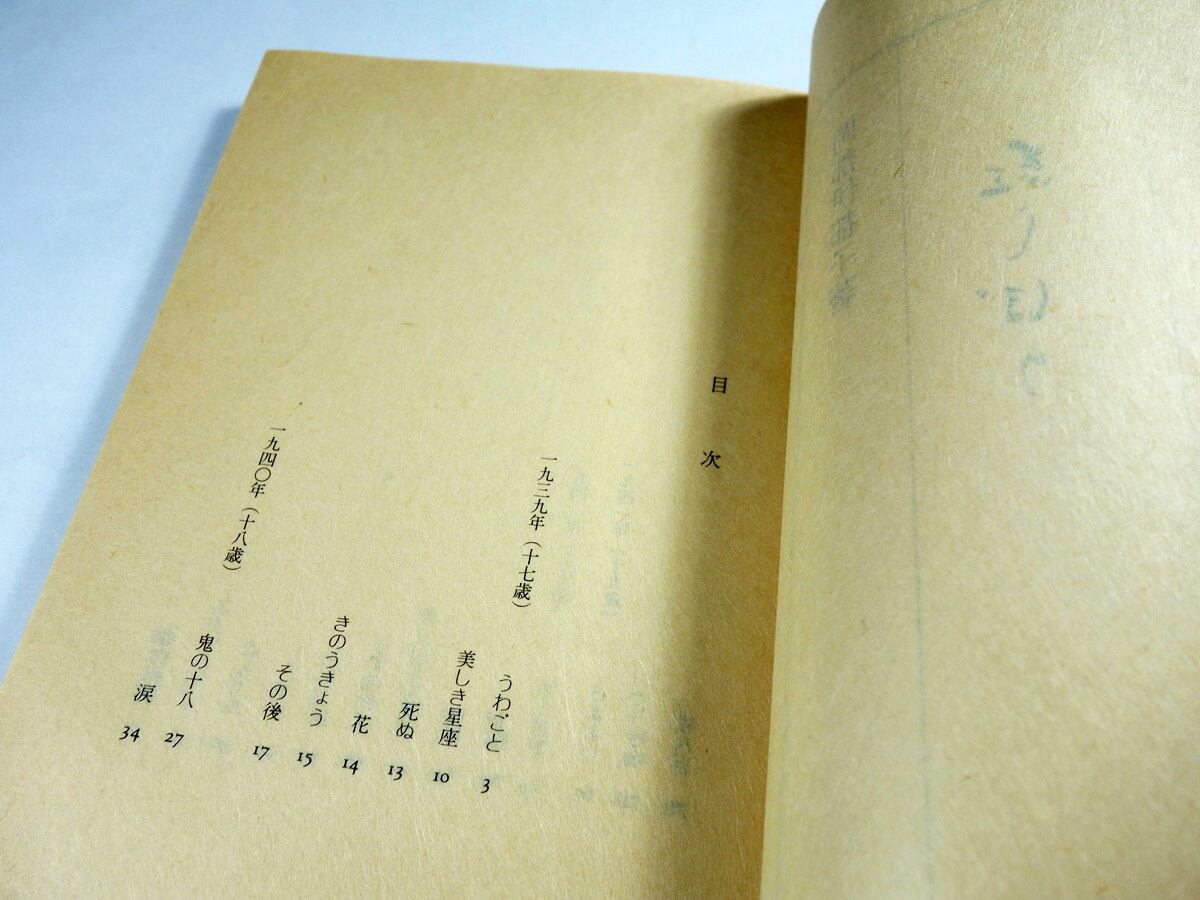 目次
一九三九年（十七歳）
うわごと 3
美しき星座 10
死ぬ 13
花 14
きのうきょう 15
その後 17
一九四〇年（十八歳）
鬼の十八 27
涙 34